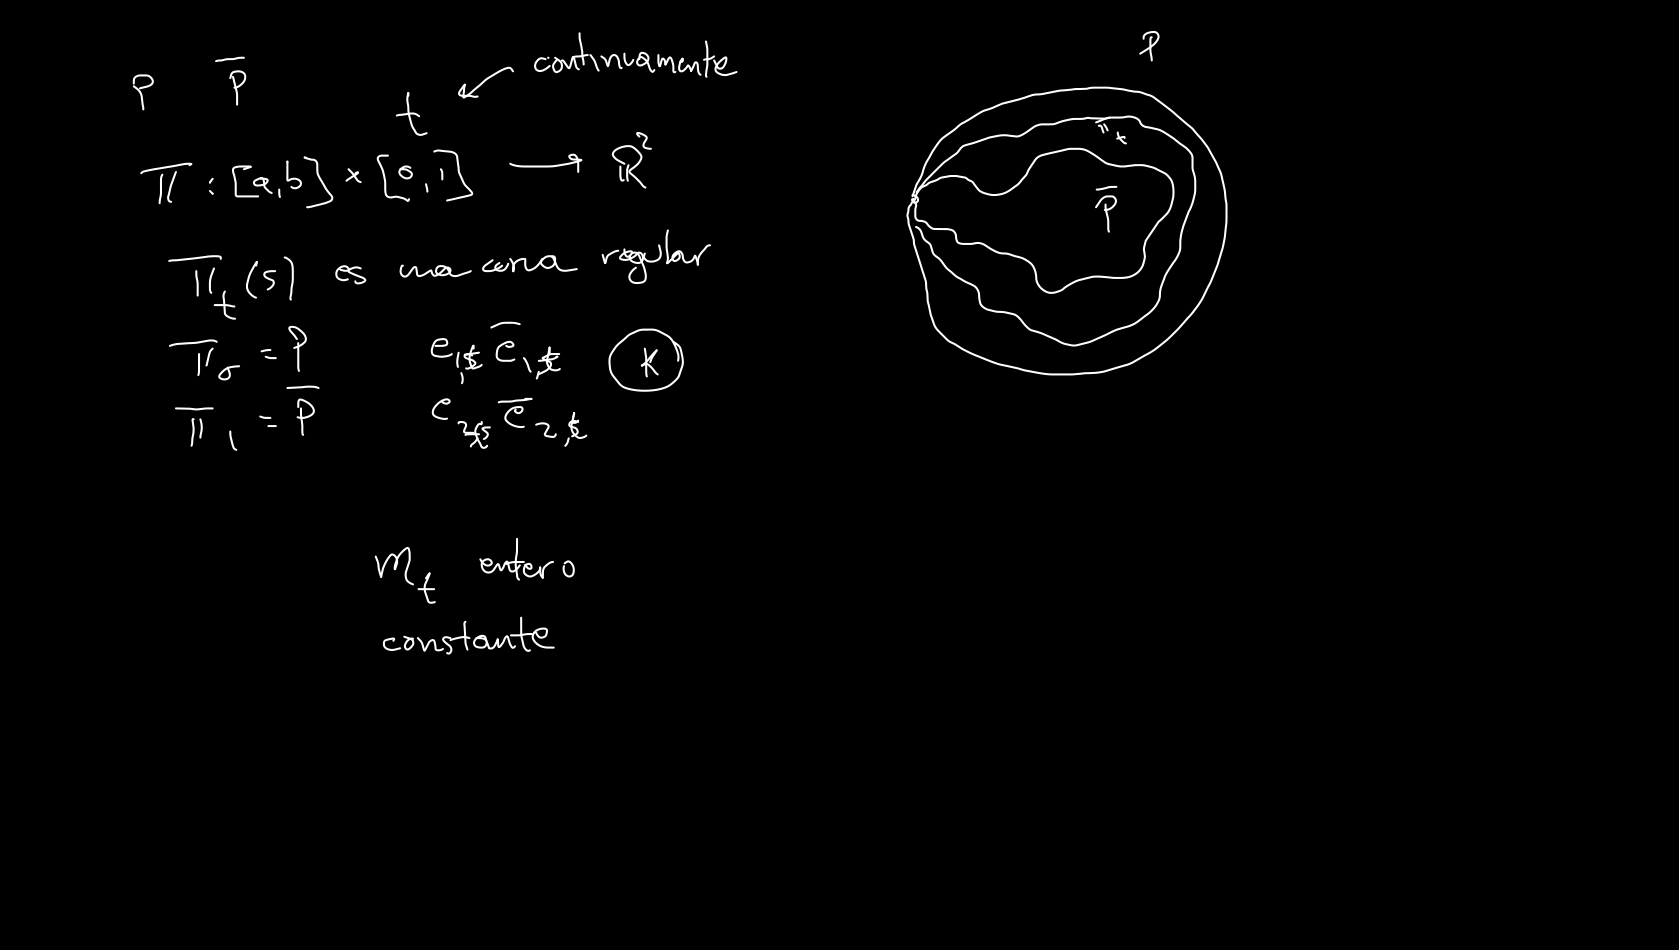 P P̅
continuamente
t
Π : [a,b] × [0,1] → ℝ²
Π_t (s) es una curva regular
Π_0 = P e_1,t e̅_1,t K
Π_1 = P̅ e_2,t e̅_2,t
m_t entero
constante
P
Π_t
P̅